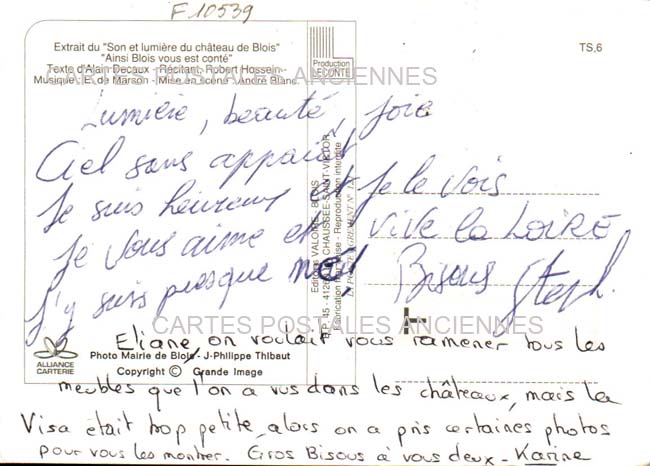 F10539
Extrait du "Son et lumière du château de Blois"
"Ainsi Blois vous est conté"
Texte d'Alain Decaux - Récitant: Robert Hossein
Musique: E. de Marson - Mise en scène: André Blanc
Production
LECONTE
TS.6
CARTES POSTALES ANCIENNES
Lumière, beauté, joie
Ciel sans apparat
Je suis heureux et je le vois
Je vous aime et VIVE la LOIRE
J'y suis presque né! Bisous Steph.
Editions VALOIRE - BLOIS
B.P. 45 - 41260 LA CHAUSSEE-SAINT-VICTOR
Fabrication Française - Reproduction interdite
CARTES POSTALES ANCIENNES
ALLIANCE
CARTERIE
Photo Mairie de Blois - J-Philippe Thibaut
Copyright © Grande Image
Eliane, on voulait vous ramener tous les
meubles que l'on a vus dans les châteaux, mais la
Visa était trop petite, alors on a pris certaines photos
pour vous les montrer. Gros Bisous à vous deux - Karine